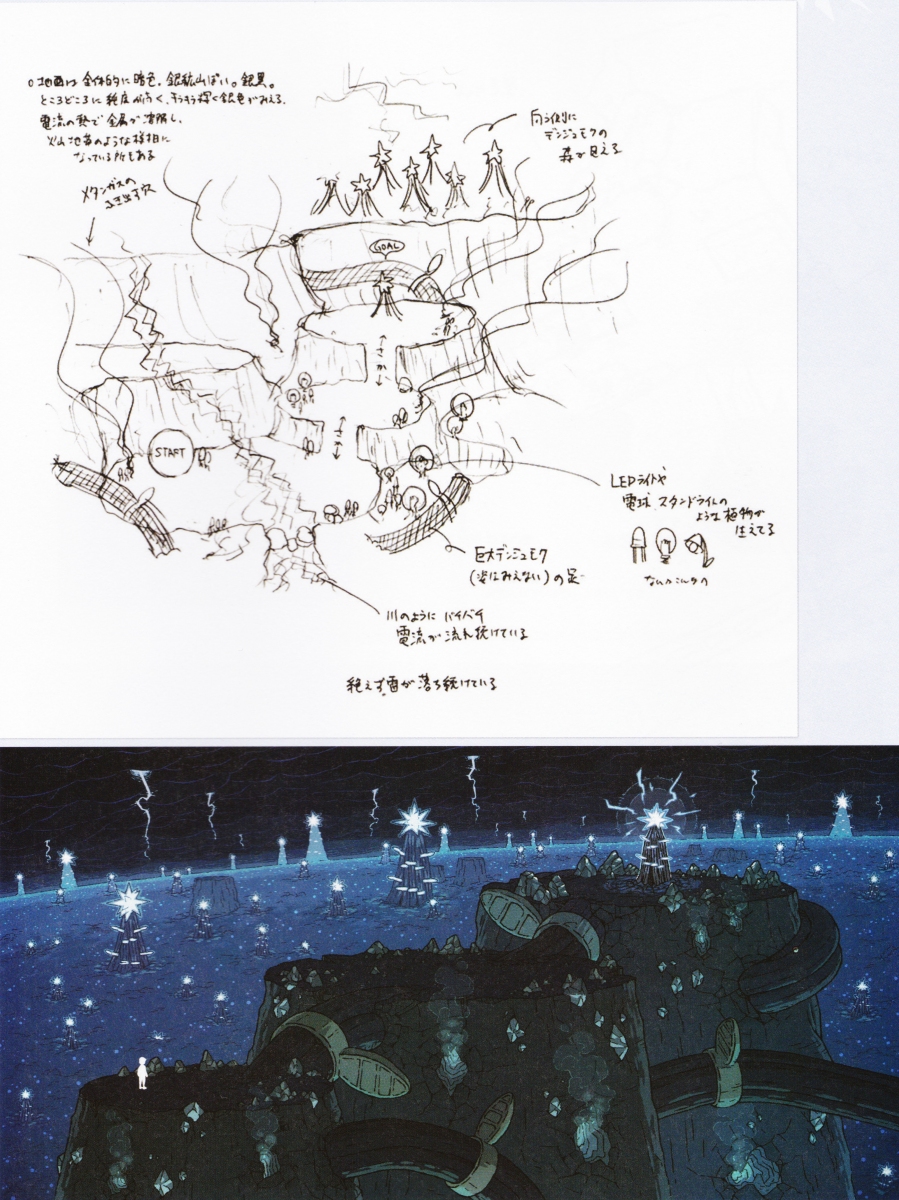 ○地面は全体的に暗色。銀鉱山ぽい。銀黒。
ところどころに純度が高く、キラキラ輝く銀色がみえる。
電流の熱で金属が凝固し、
火山地帯のような様相に
なっている所もある
メタンガスの
ふき出す穴
向こう側に
デンジュモクの
森が見える
GOAL
さか
さか
START
LEDライトや
電球、スタンドライトの
ような植物が
生えてる
巨大デンジュモク
(姿はみえない)の足
川のように バチバチ
電流が流れ続けている
絶えず雷が落ち続けている